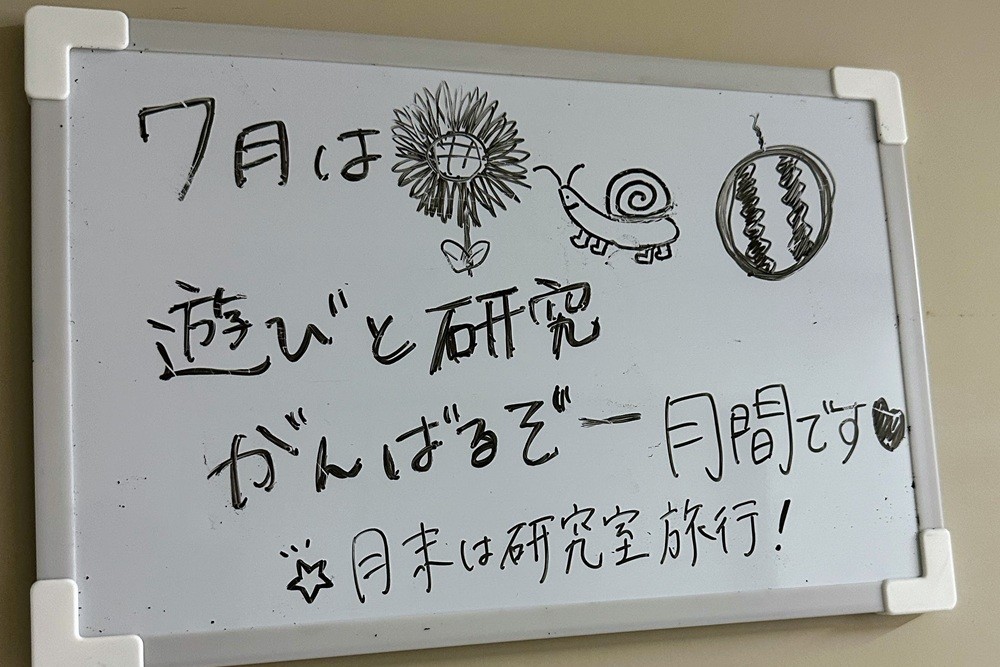 7月は
遊びと研究
がんばるぞー月間です♥
☆月末は研究室旅行!